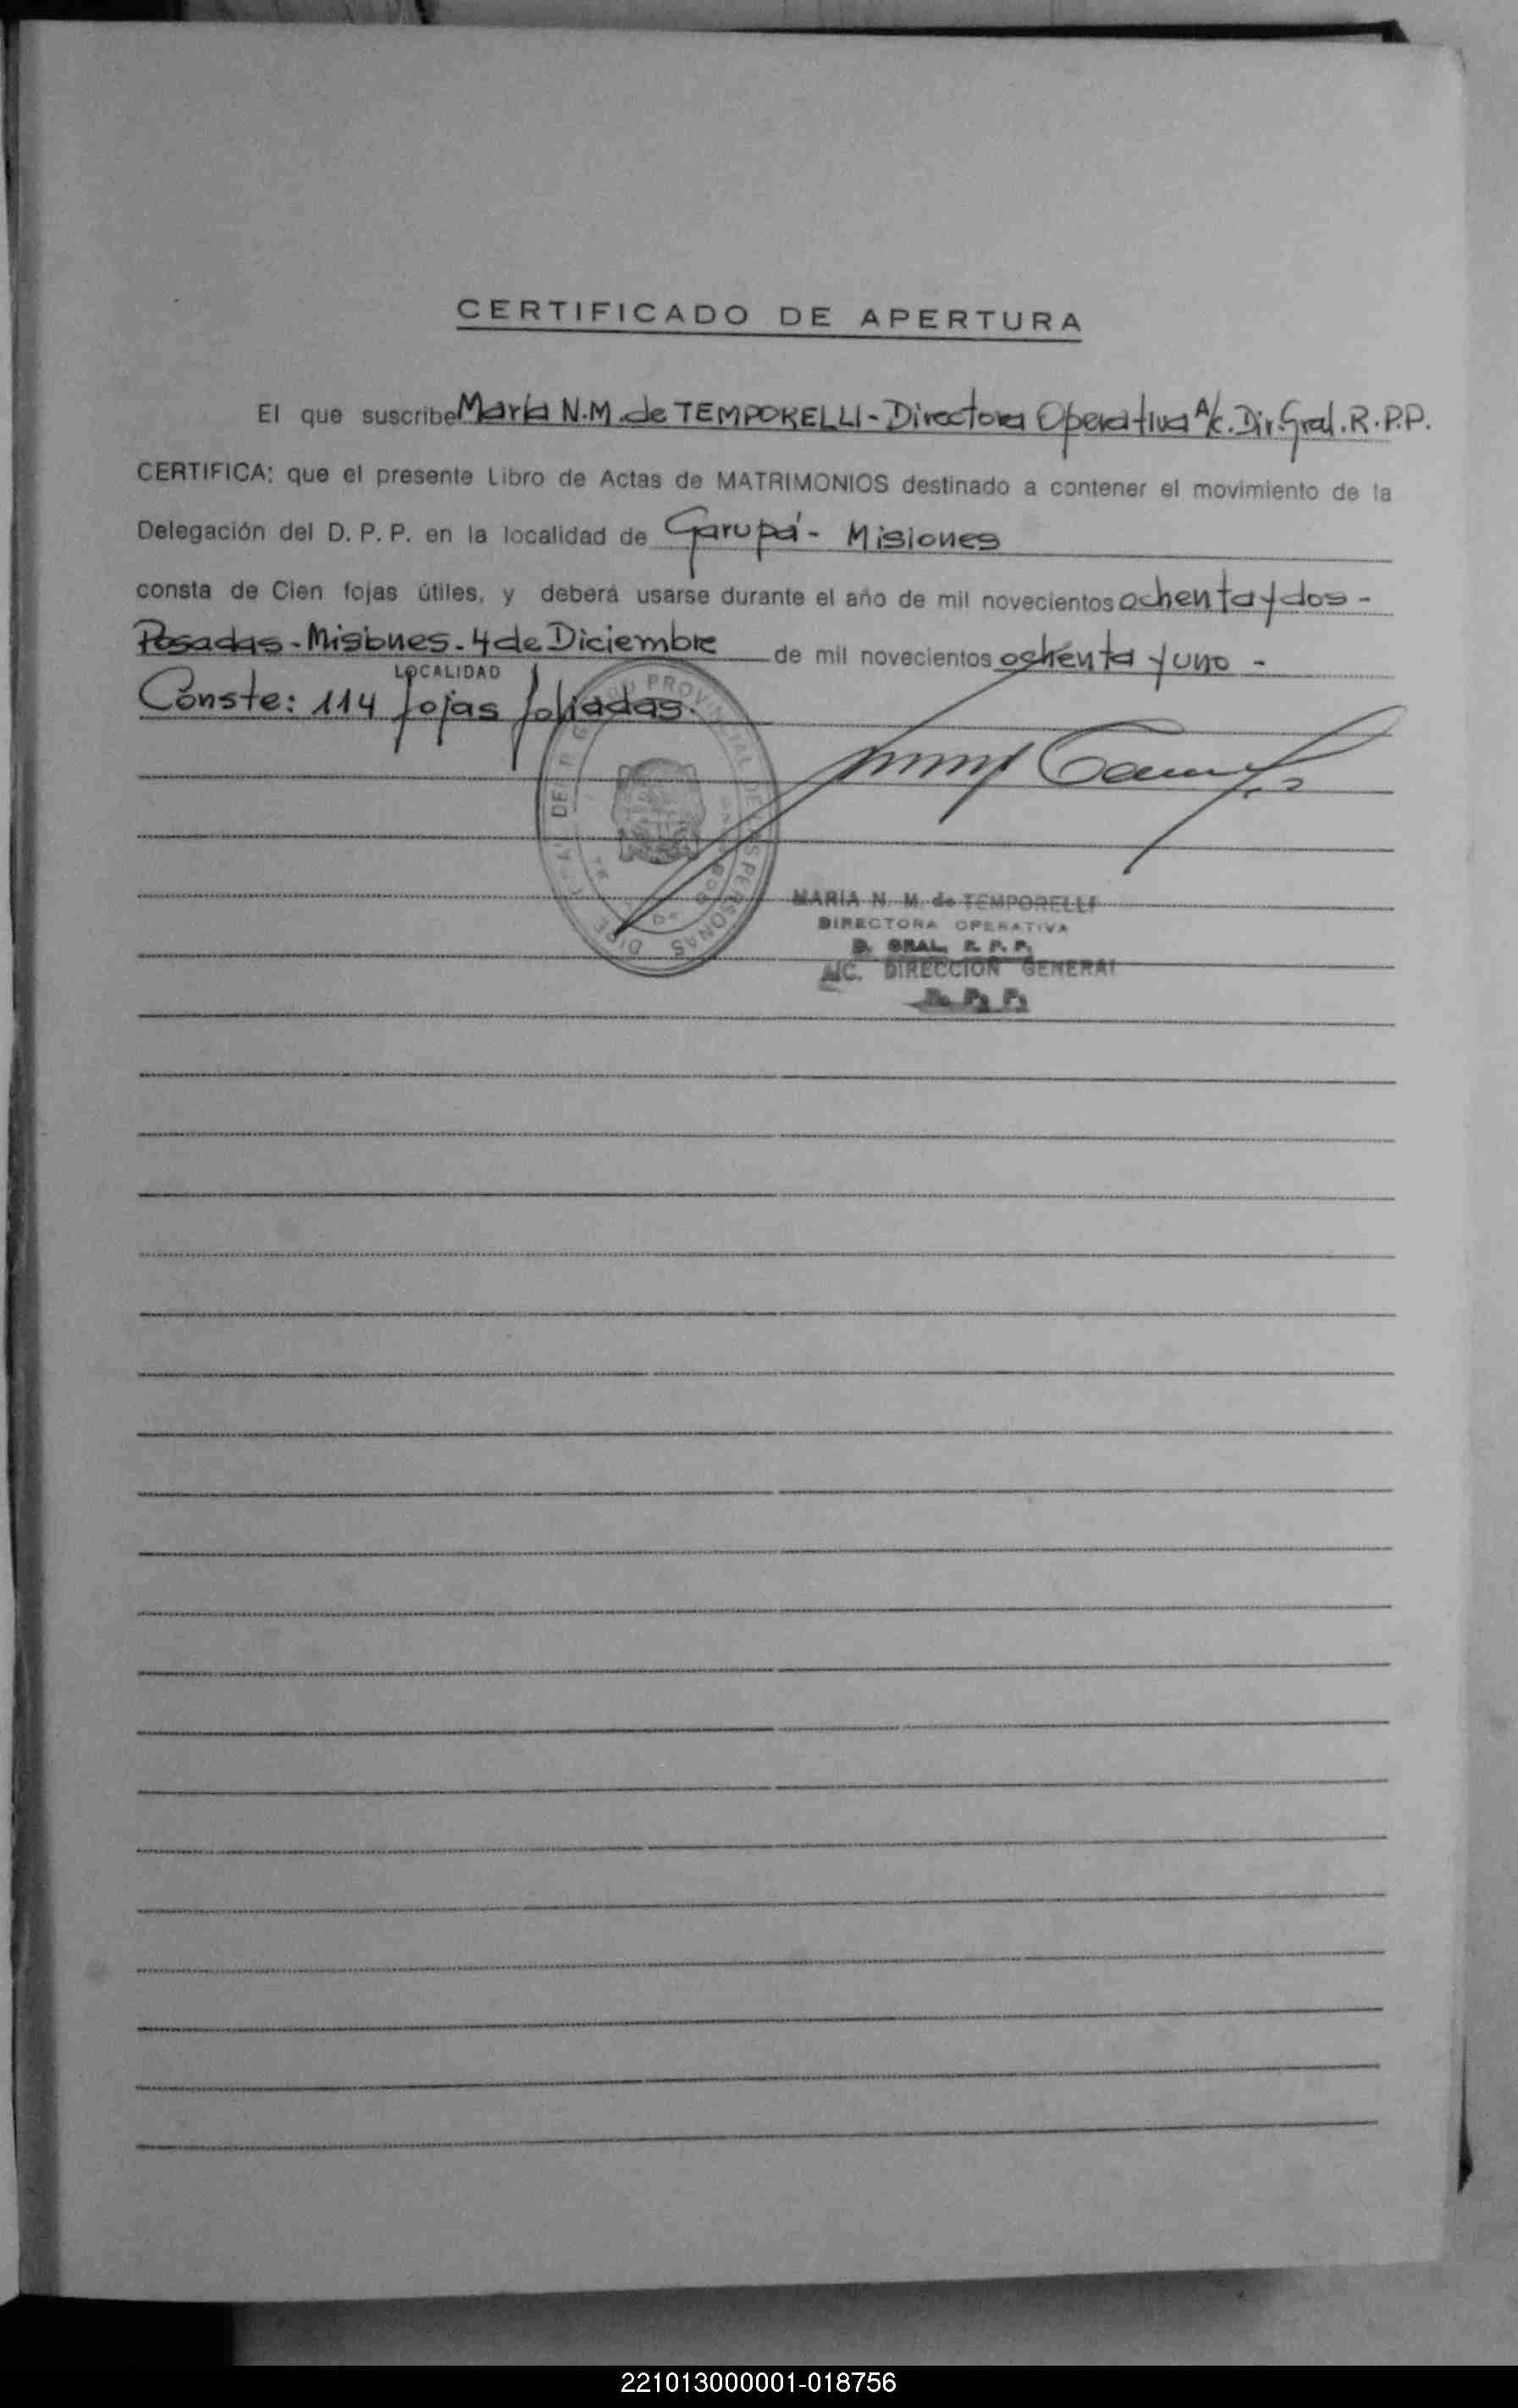 CERTIFICADO DE APERTURA
El que suscribe María N.M. de TEMPORELLI - Directora Operativa A/c. Dir. Gral. R.P.P.
CERTIFICA: que el presente Libro de Actas de MATRIMONIOS destinado a contener el movimiento de la
Delegación del D. P. P. en la localidad de Garupá - Misiones
consta de Cien fojas útiles, y deberá usarse durante el año de mil novecientos ochenta y dos -
Posadas - Misiones - 4 de Diciembre de mil novecientos ochenta y uno -
LOCALIDAD
Conste: 114 fojas foliadas.
PROVINCIAL DE LAS PERSONAS
MARIA N. M. de TEMPORELLI
DIRECTORA OPERATIVA
D. GRAL. R. P. P.
A/C. DIRECCION GENERAL
R. P. P.
221013000001-018756